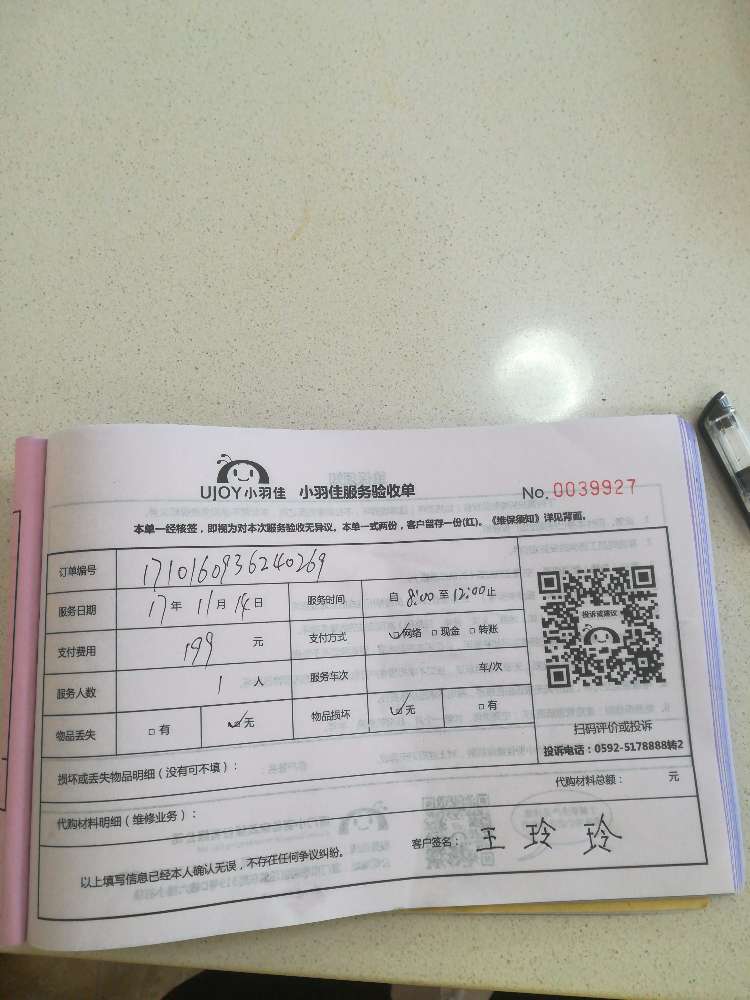 UJOY小羽佳 小羽佳服务验收单 No.0039927
本单一经核签，即视为对本次服务验收无异议。本单一式两份，客户留存一份(红)。《维保须知》详见背面。
订单编号 1710160936240269
服务日期 17年 11月 14日 服务时间 自 8:00 至 12:00 止
支付费用 199 元 支付方式 ☑网络 □现金 □转账
服务人数 1 人 服务车次 车/次
物品丢失 □有 ☑无 物品损坏 ☑无 □有
投诉或建议
扫码评价或投诉
投诉电话：0592-5178888转2
损坏或丢失物品明细（没有可不填）：
代购材料明细（维修业务）： 代购材料总额： 元
以上填写信息已经本人确认无误，不存在任何争议纠纷。 客户签名： 王玲玲